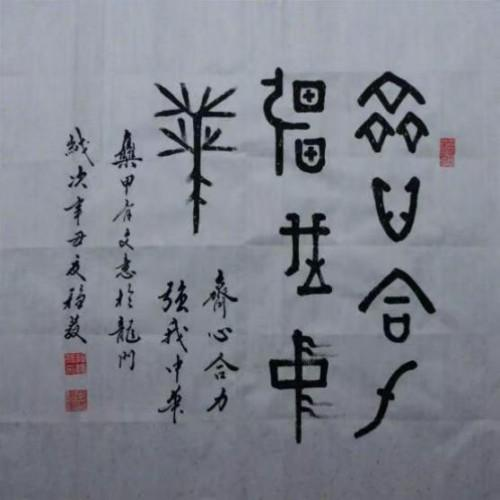 齊心合力
強我中華
齊心合力
強我中華
集甲骨文意於龍門
歲次辛丑夏